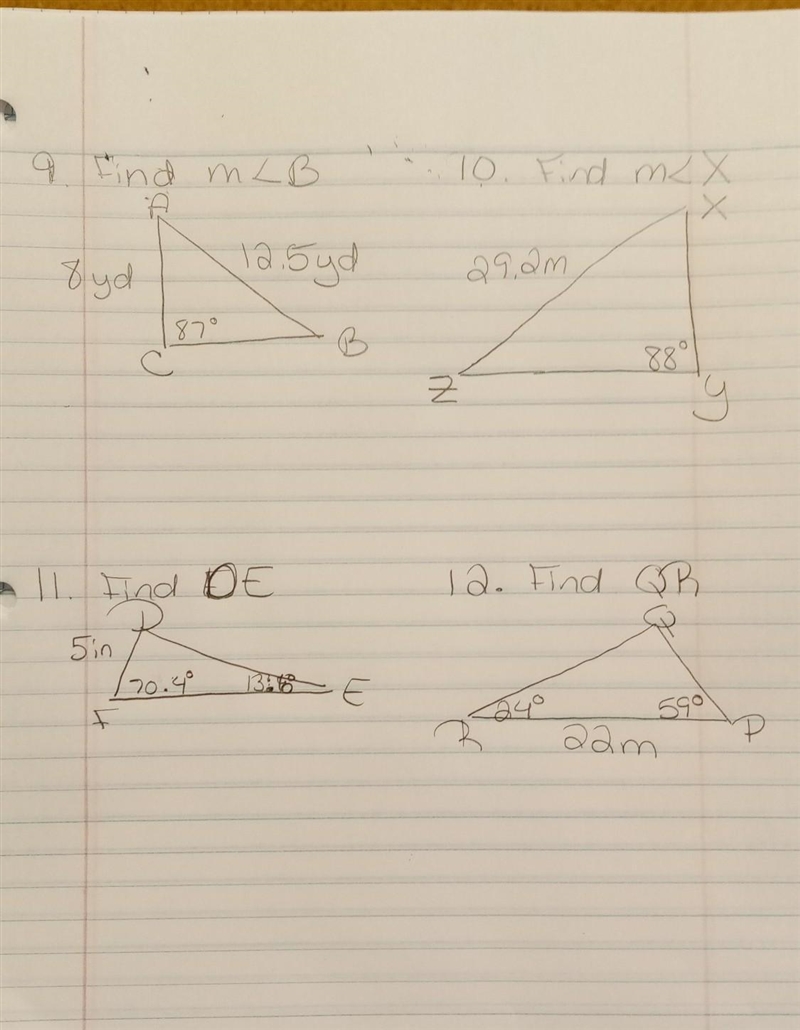 9. Find m∠B
A
8yd
12.5yd
87°
C
B
10. Find m∠X
X
29.2m
88°
Z
y
11. Find DE
D
5in
70.4°
E
F
12. Find QR
Q
24°
59°
R
P
22m